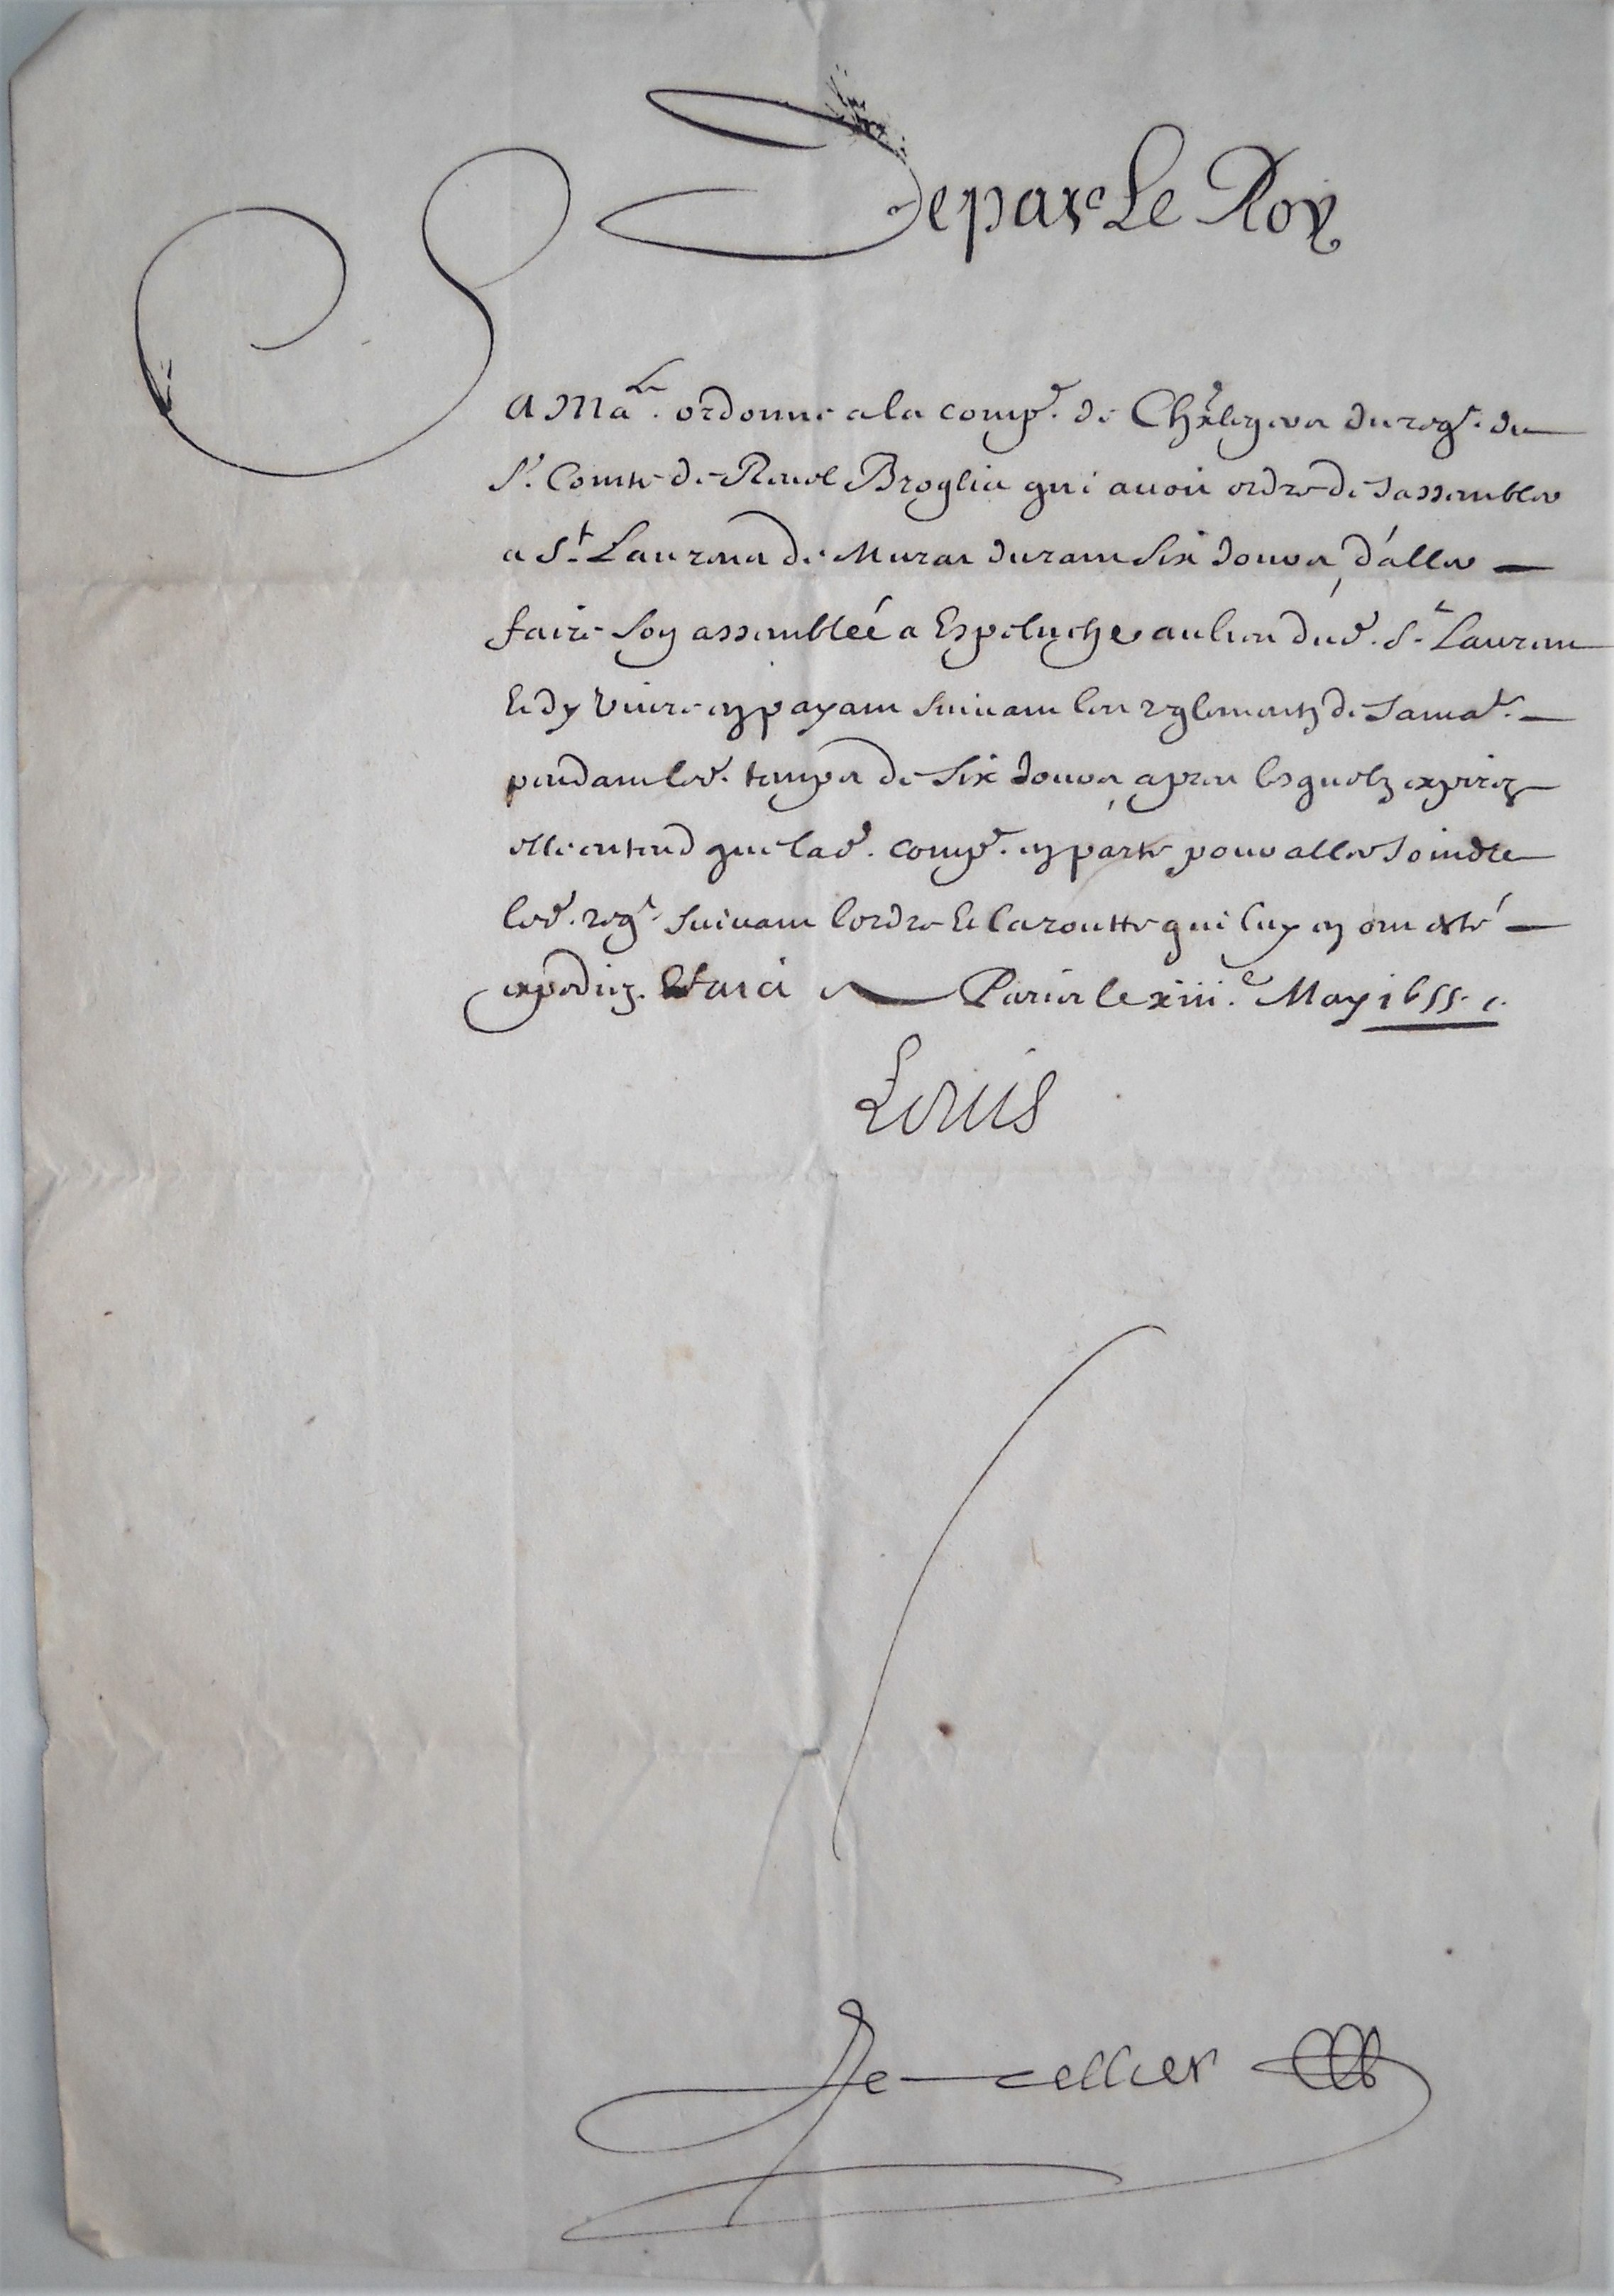 De par Le Roy
Sa Ma.té ordonne a la comp.e de Ch.rs legers du reg.t du
S.r Comte de Revel Broglia qui auoit ordre de sassembler
a S.t Laurens de Muras durant six Jours, d'aller
faire son assembleé a Espeluche au lieu dud. S.t Laurens
Et dy viure en payant suiuant les reglements de Sa ma.té
pendant led. temps de six Jours, apres lesquelz expirez
elle entend que lad. comp.e en parte pour aller Joindre
led. reg.t suiuant lordre Et la routte qui luy en ont esté
expediez. Fait a Paris le xiii.e May 1655.
Louis
Le Tellier